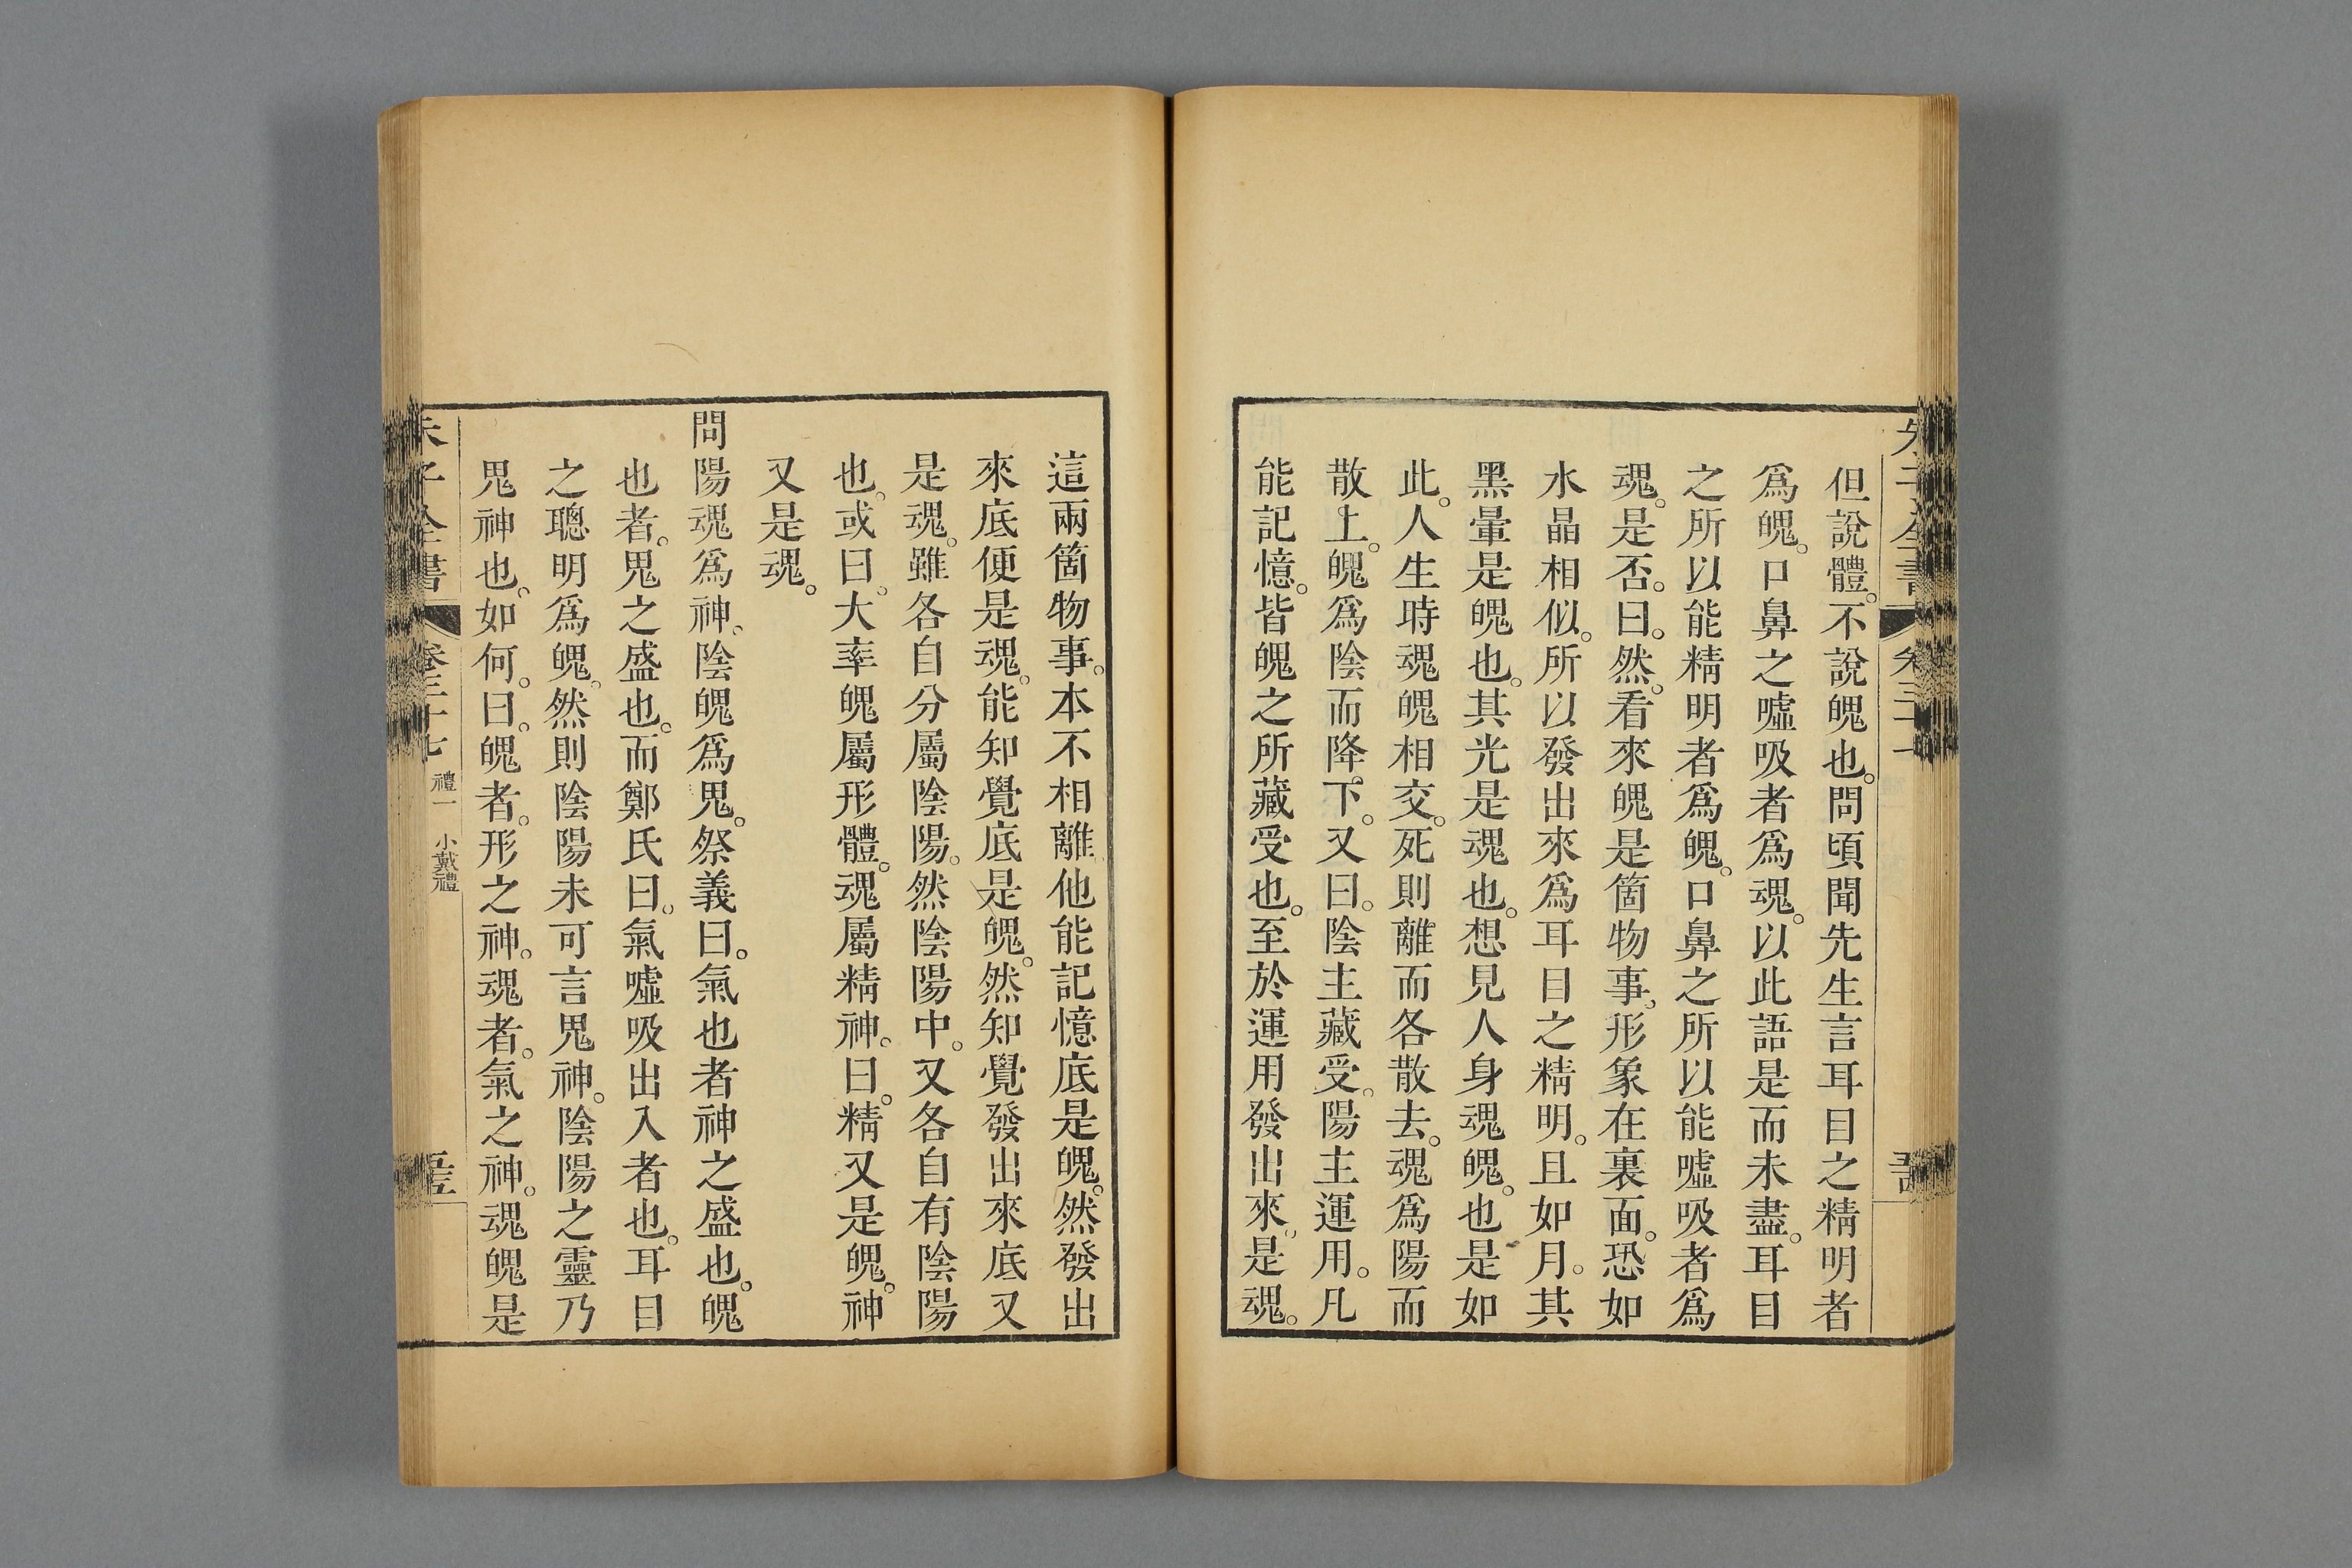 但說體。不說魄也。問頃聞先生言耳目之精明者
爲魄。口鼻之噓吸者爲魂。以此語是而未盡。耳目
之所以能精明者爲魄。口鼻之所以能噓吸者爲
魂。是否。曰。然。看來魄是箇物事。形象在裏面。恐如
水晶相似。所以發出來爲耳目之精明。且如月。其
黑暈是魄也。其光是魂也。想見人身魂魄。也是如
此。人生時魂魄相交。死則離而各散去。魂爲陽而
散上。魄爲陰而降下。又曰。陰主藏受。陽主運用。凡
能記憶。皆魄之所藏受也。至於運用發出來。是魂。
這兩箇物事。本不相離。他能記憶底是魄。然發出
來底便是魂。能知覺底是魄。然知覺發出來底又
是魂。雖各自分屬陰陽。然陰陽中。又各自有陰陽
也。或曰。大率魄屬形體。魂屬精神。曰。精又是魄。神
又是魂。
問陽魂爲神。陰魄爲鬼。祭義曰。氣也者神之盛也。魄
也者。鬼之盛也。而鄭氏曰。氣噓吸出入者也。耳目
之聰明爲魄。然則陰陽未可言鬼神。陰陽之靈乃
鬼神也。如何。曰。魄者。形之神。魂者。氣之神。魂魄是
朱子全書
卷三十七
禮一 小戴禮